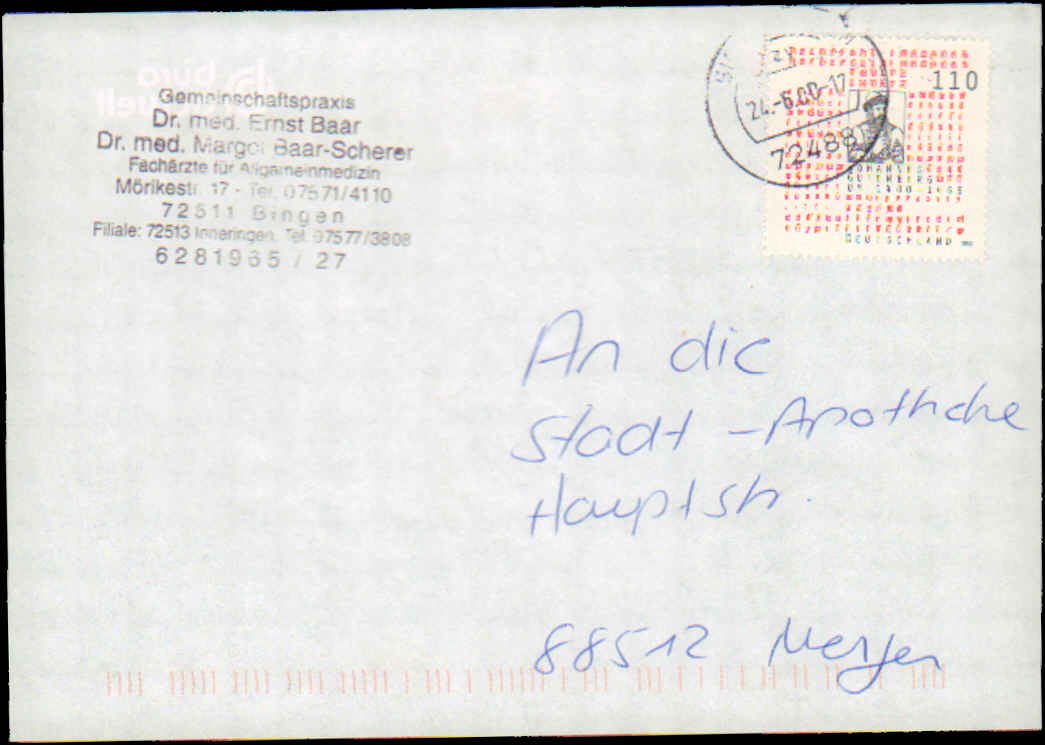 büro
Gemeinschaftspraxis
Dr. med. Ernst Baar
Dr. med. Margot Baar-Scherer
Fachärzte für Allgemeinmedizin
Mörikestr. 17 - Tel. 07571/4110
72511 Bingen
Filiale: 72513 Inneringen, Tel. 07577/3808
6281965 / 27
24.-6.00-17
72488
110
JOHANNES
GUTENBERG
UM 1400-1468
DEUTSCHLAND
An die
Stadt-Apotheke
Hauptstr.
88512 Mengen